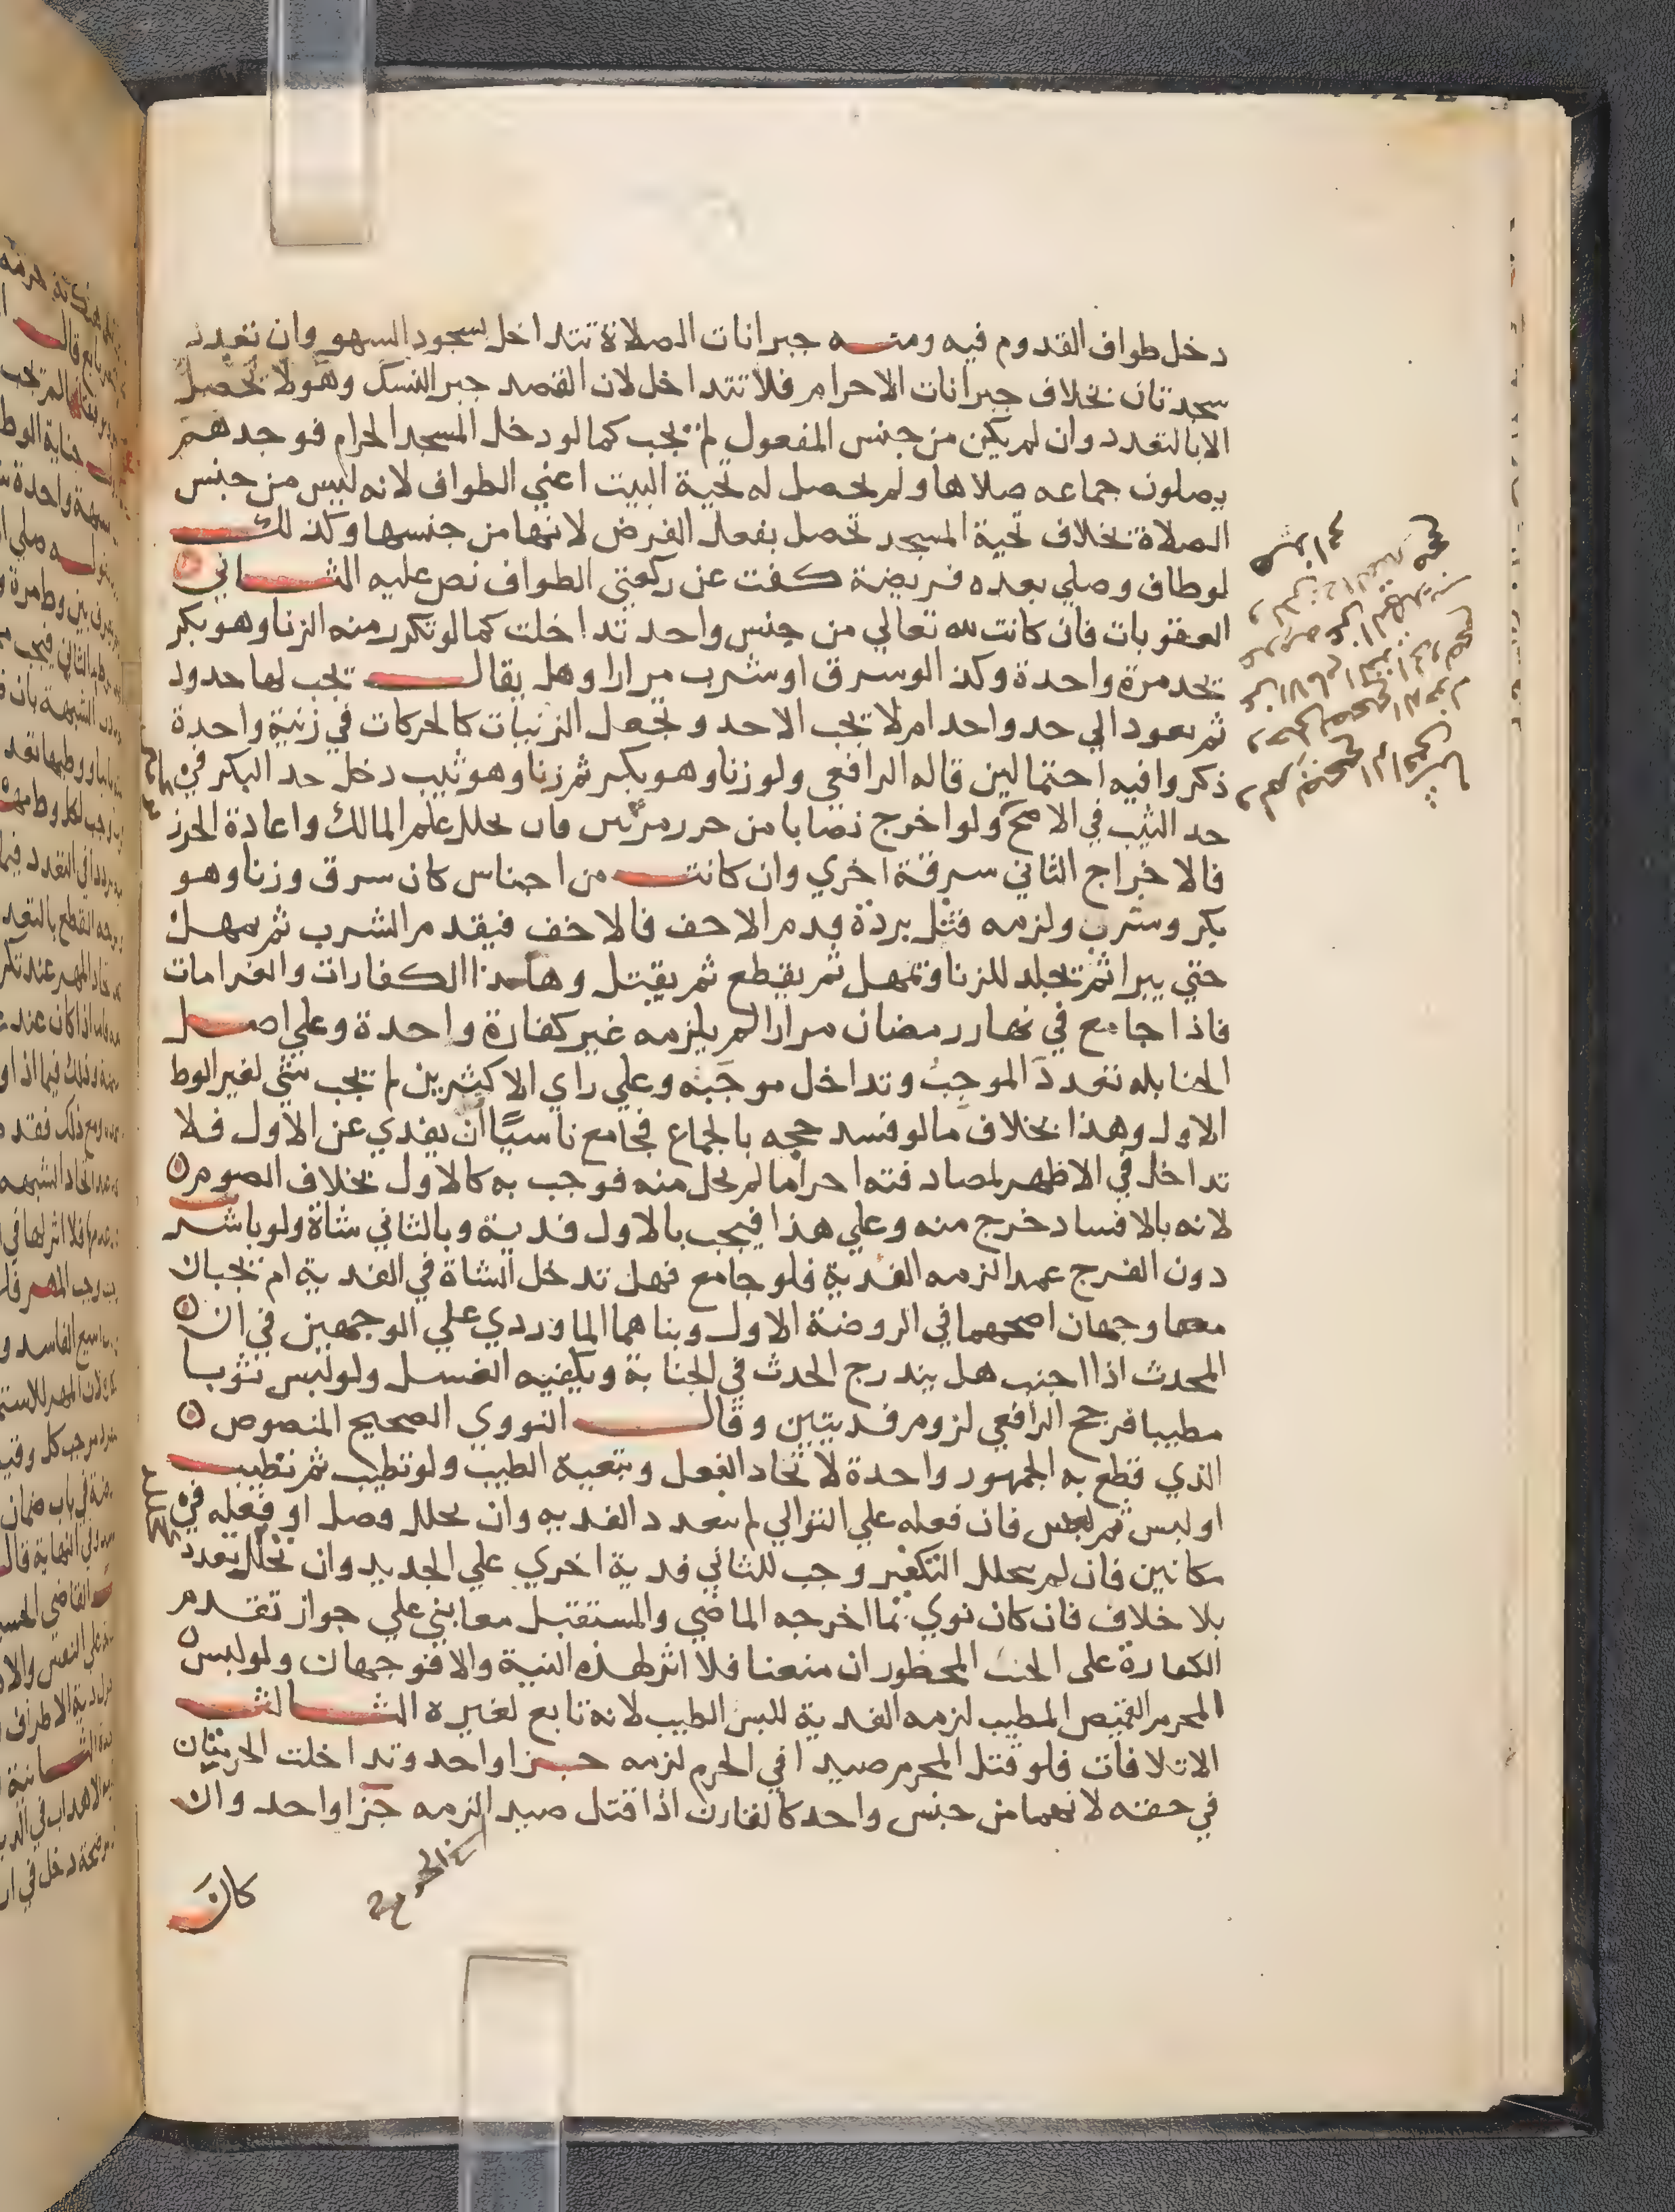 دخل طواف القدوم فيه ومنه جبرانات الصلاة تتداخل لسجود السهو وان تعدد
سجدتان بخلاف جبرانات الاحرام فلا تتداخل لان القصد جبر النسك وهو لا تحصل
الا بالتعدد وان لم يكن من جنس المفعول لم يجب كما لو دخل المسجد الحرام فوجدهم
يصلون جماعه صلاها ولم تحصل له تحية البيت اعني الطواف لانه ليس من جنس
الصلاة بخلاف تحية المسجد تحصل بفعل الفرض لانها من جنسها وكذلك
لو طاف وصلي بعده فريضة كفت عن ركعتي الطواف نص عليه الثاني
العقوبات فان كانت لله تعالي من جنس واحد تداخلت كما لو تكرر منه الزنا وهو بكر
يحد مرة واحدة وكذا لو سرق او شرب مرارا وهل يقال تجب لها حدود
ثم يعود الي حد واحد ام لا تجب الا حد وتجعل الزنيات كالحركات في زنية واحدة
ذكروا فيه احتمالين قاله الرافعي ولو زنا وهو بكر ثم زنا وهو ثيب دخل حد البكر في
حد الثيب في الاصح ولو اخرج نصابا من حرز مرتين فان تخلل علم المالك واعادة الحرز
فالاخراج الثاني سرقة اخري وان كانت من اجناس كان سرق وزنا وهو
بكر وشرب ولزمه قتل بردة قدم الاخف فالاخف فيقدم الشرب ثم يمهل
حتي يبرا ثم يجلد للزنا ويمهل ثم يقطع ثم يقتل وهكذا الكفارات والغرامات
فاذا جامع في نهار رمضان مرارا لم يلزمه غير كفارة واحدة وعلي اصل
الحنابله تعدد الموجب وتداخل موجبه وعلي راي الاكثرين لم تجب شي لغير الوط
الاول وهذا بخلاف ما لو فسد حجه بالجماع فجامع ناسيا ان يفدي عن الاول فلا
تداخل في الاظهر لمصادفته احراما لم يحل منه فوجب به كالاول بخلاف الصوم
لانه بالافساد خرج منه وعلي هذا فيجب بالاول فدية وبالثاني شاة ولو باشر
دون الفرج عمدا لزمه الفدية فلو جامع فهل تدخل الشاة في الفدية ام تجبان
معا وجهان اصحهما في الروضة الاول وبناهما الماوردي علي الوجهين في ان
المحدث اذا اجنب هل يندرج الحدث في الجنابة ويكفيه الغسل ولو لبس ثوبا
مطيبا فرجح الرافعي لزوم فديتين وقال النووي الصحيح المنصوص
الذي قطع به الجمهور واحدة لاتحاد الفعل وتبعية الطيب ولو تطيب ثم تطيب
او لبس ثم لبس فان فعله علي التوالي لم تعدد الفديه وان تخلل فصل او فعله في
مكانين فان لم يتخلل التكفير وجب للثاني فدية اخري علي الجديد وان تخلل تعدد
بلا خلاف فان كان نوي بما اخرجه الماضي والمستقبل معا بني علي جواز تقدم
الكفارة علي الحنث المحظور ان منعنا فلا اثر لهذه النية والا فوجهان ولو لبس
المحرم القميص المطيب لزمه الفدية للبس الطيب لانه تابع لغيره الثالث
الاتلافات فلو قتل المحرم صيدا في الحرم لزمه جزا واحد وتداخلت الحرمتان
في حقه لانهما من جنس واحد كالقارن اذا قتل صيدا لزمه جزا واحد وان
كان